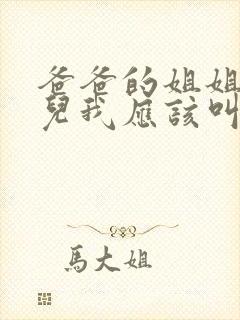 爸爸的姐姐
兒我應該叫
馬大姐